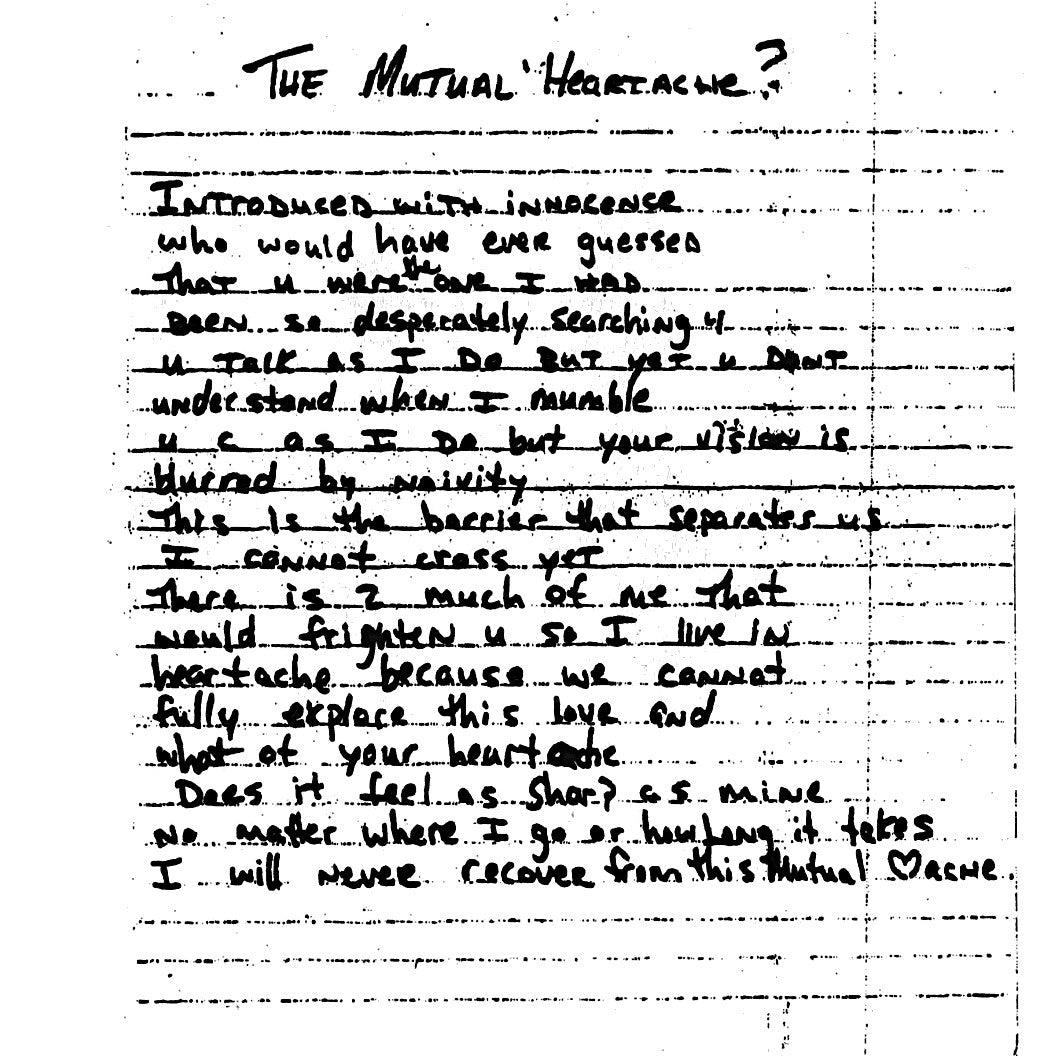 THE MUTUAL HEARTACHE?
INTRODUCED WITH INNOCENSE
who would have ever guessed
That u were the one I HAD
BEEN so desperately searching 4
u TALK AS I DO BUT yet u DONT
understand when I mumble
u c as I Do but your vision is
blurred by naivity
This is the barrier that separates us
I cannot cross yet
There is 2 much of me that
would frighten u so I live in
heartache because we cannot
fully explore this love and
what of your heartache
Does it feel as Sharp as mine
No matter where I go or how long it takes
I will never recover from this Mutual ♡ACHE.